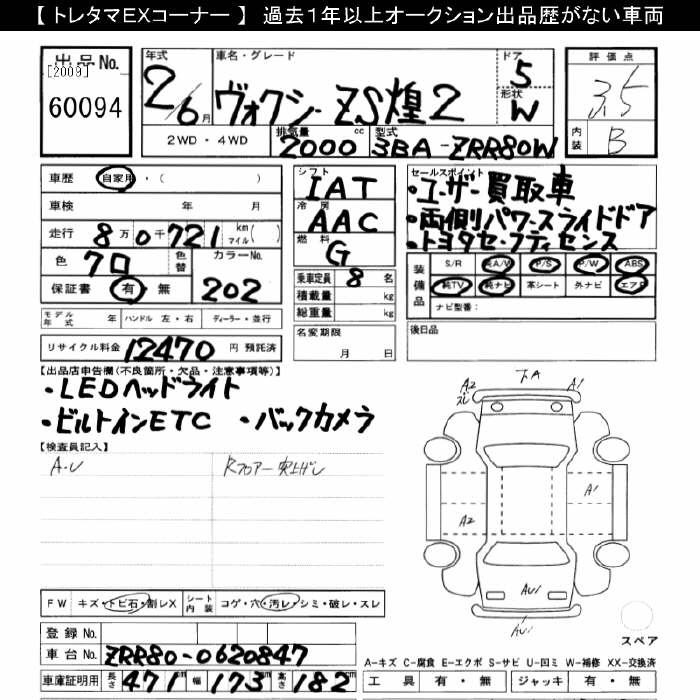 【 トレタマEXコーナー 】 過去1年以上オークション出品歴がない車両
出品No.
[2009]
60094
年式 車名・グレード ドア 5
2/6月 ヴォクシー ZS煌2 形状 W
2WD ・ 4WD 排気量 2000 cc 型式 3BA-ZRR80W
評価点 3.5
内装 B
車歴 自家用・( )
車検 年 月
走行 8万0千721 km マイル( )
色 クロ 色替 カラーNo.
保証書 有・無 202
モデル年式 年 ハンドル 左・右 ディーラー・並行
リサイクル料金 12470 円 預託済
シフト IAT
冷房 AAC
燃料 G
乗車定員 8 名
積載量 kg
総重量 kg
名変期限
月 日
セールスポイント
・ユーザー買取車
・両側パワースライドドア
・トヨタセーフティセンス
装備品
S/R 純A/W P/S P/W ABS
純TV 純ナビ 革シート 外ナビ エアB
ナビ型番:
後日品
【出品店申告欄(不良箇所・欠品・注意事項等)】
・LEDヘッドライト
・ビルトインETC ・バックカメラ
【検査員記入】
A.U Rフロアー突上げし
下A
A2 A1
ズレ
A1
A2
AU1
AU1
スペア
FW キズ・トビ石・割レX シート内装 コゲ・穴・汚レ・シミ・破レ・スレ
登録 No.
車台 No. ZRR80-0620847
車庫証明用 長さ 471 幅 173 高さ 182
A-キズ C-腐食 E-エクボ S-サビ U-凹ミ W-補修 XX-交換済
工具 有・無 ジャッキ 有・無